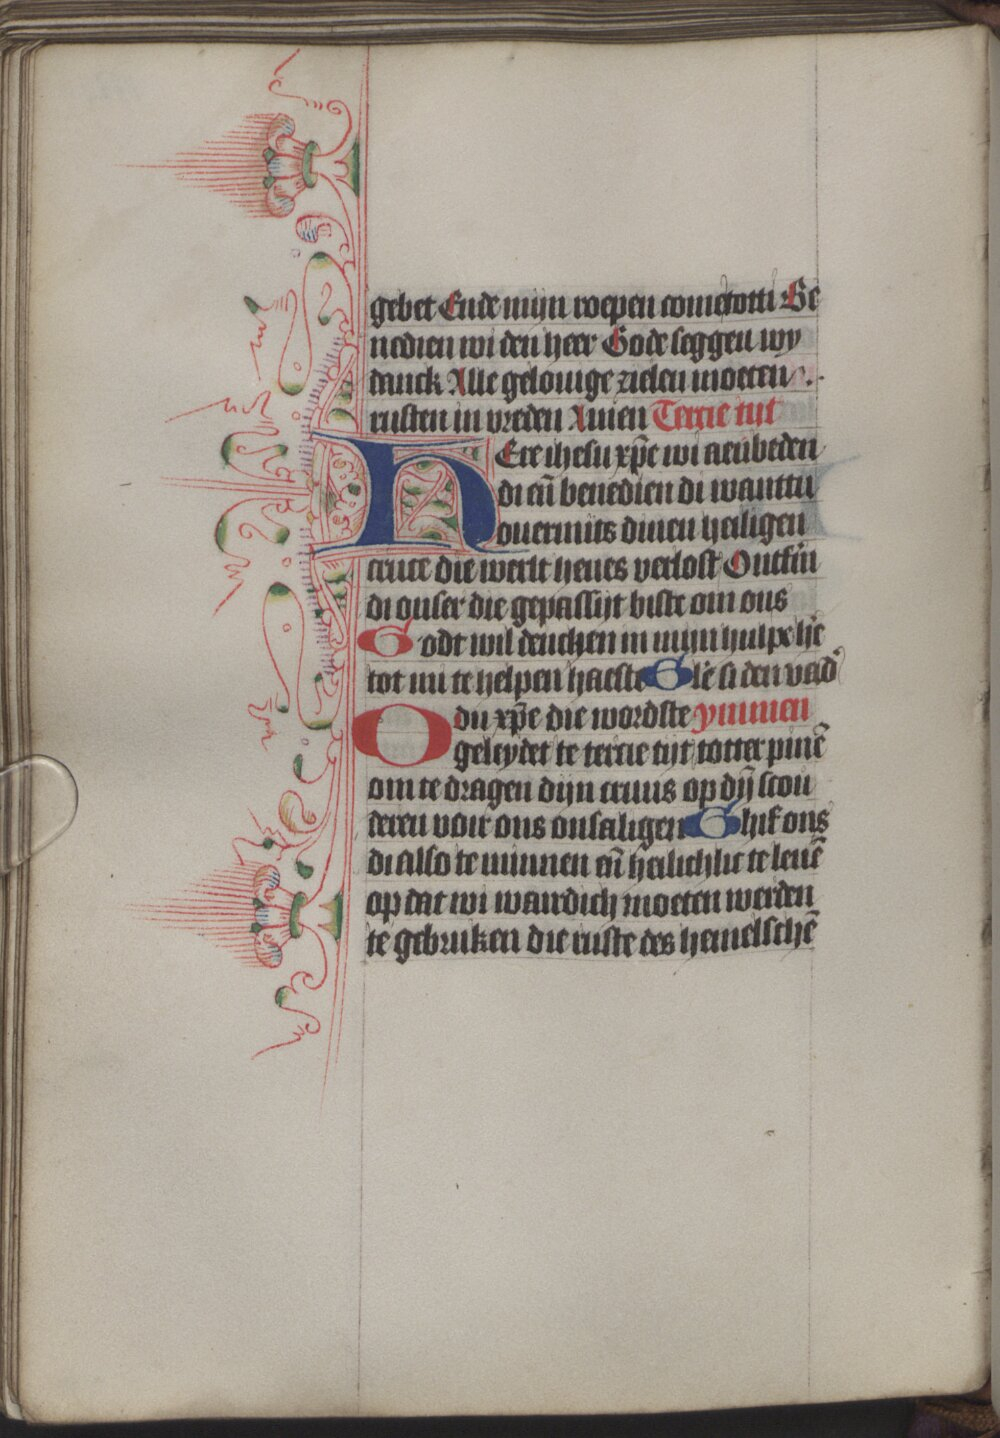 gebet Ende mijn roepen come totti Be
nedien wi den heer Gode seggen wy
danck Alle gelouige zielen moeten
rusten in vreden Amen Tercie tijt
HEre ihesu xp̄e wi aenbeden
di eñ benedien di wanttu
ouermits dinen heiligen
cruce die werlt heues verlost Ontfin
di onser die gepassijt biste om ons
Godt wil dencken in mijn hulpe h̄e
tot mi te helpen haeste Gl̄e si den vad̕
O du xp̄e die wordste ymmen
geleydet te tercie tijt totter pinē
om te dragen dijn cruus op dij̄ scou
deren voir ons onsaligen Ghif ons
di also te minnen eñ heilichlic te leuē
op dat wi wairdich moeten werden
te gebruken die ruste des hemelschē